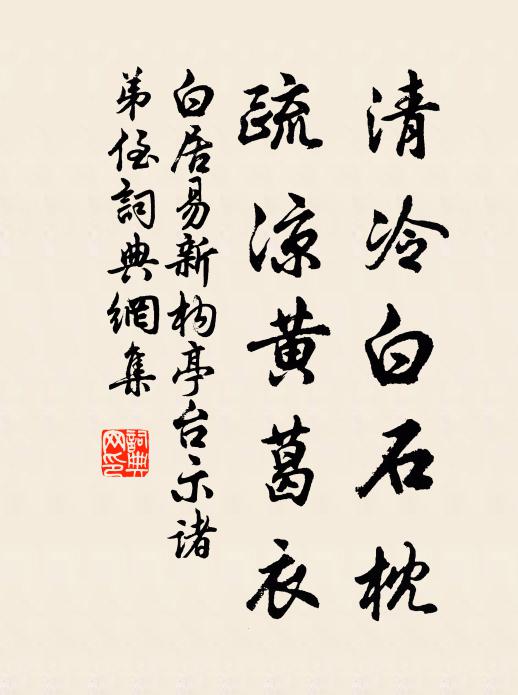 清冷白石枕
疏凉黄葛衣
白居易新构亭台示诸
弟侄詞典網集
詞典网印